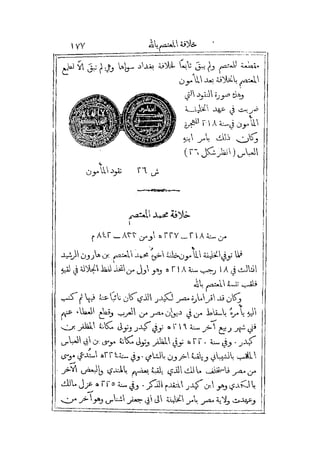 خلافة المعتصم بالله ١٧٧
مقطعة للمعتصم ولم يبق تابعًا لخلافة بغداد سواها وهي لم تبق الّا لطمع
المعتصم بالخلافة بعد المأمون
وهاك صورة النقود التي
ضربت في عهد الخليفة
المأمون في سنة ٢١٨ للهجرة
وكان ذلك بامر ابنه
العباس (انظر شكل ٢٦)
ش ٢٦ نقود المأمون
خلافة محمد المعتصم
من سنة ٢١٨ – ٢٢٧ ه او من ٨٣٣ – ٨٤٢ م
فلما توفي الخليفة المأمون خلفه اخوه محمد المعتصم بن هارون الرشيد
الثالث في ١٨ رجب سنة ٢١٨ ه وهو اول من اتخذ لفظ الجلالة في لقبه
فلقب نفسه المعتصم بالله
وكان قد اقر امارة مصر لكيدر الذي كان نائبًا عنه فيها ثم كتب
اليه يأمره باسقاط من في ديوان مصر من العرب وقطع العطاء عنهم
ففي شهر ربيع آخر سنة ٢١٩ ه توفي كيدر وتولى مكانه المظفر بن
كيدر. وفي سنة ٢٢٠ ه توفي المظفر وتولى مكانه موسى بن ابي العباس
الملقب بالشيباني ويلقبه اخرون بالشامي. وفي سنة ٢٢٤ ه استُدعي موسى
من مصر فاستخلف مالك الذي يلقبه بعضهم بالهندي والبعض الآخر
بالكندي وهو ابن كيدر المتقدم الذكر. وفي سنة ٢٢٥ ه عزل مالك
وعهدت ولاية مصر بامر الخليفة الى ابي جعفر اشناس وهو آخر من